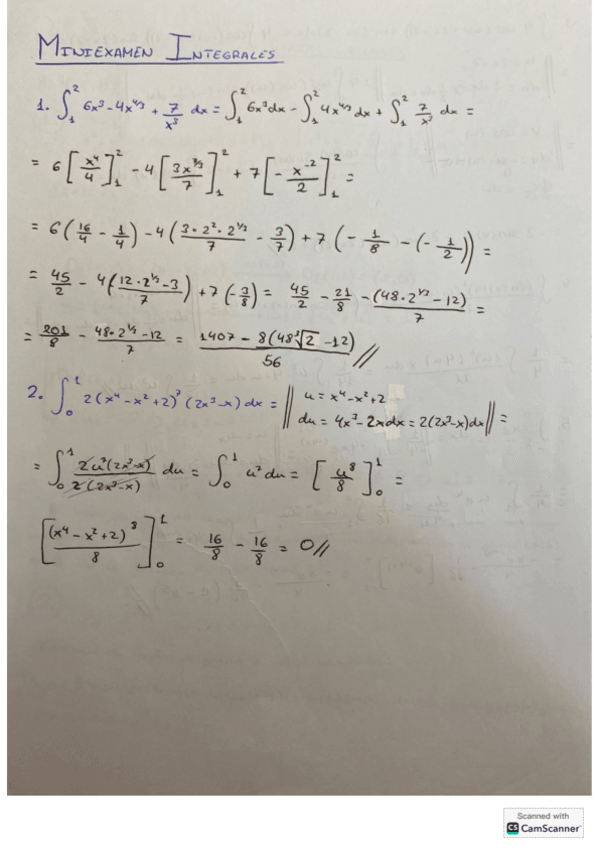 MINIEXAMEN INTEGRALES
1. ∫₁² 6x³ - 4x^(4/3) + 7/x³ dx = ∫₁² 6x³dx - ∫₁² 4x^(4/3) dx + ∫₁² 7/x³ dx =
= 6[x⁴/4]₁² - 4[3x^(7/3)/7]₁² + 7[-x⁻²/2]₁² =
= 6(16/4 - 1/4) - 4(3·2²·2^(1/3)/7 - 3/7) + 7(-1/8 - (-1/2)) =
= 45/2 - 4(12·2^(1/3) - 3/7) + 7(-3/8) = 45/2 - 21/8 - (48·2^(1/3) - 12)/7 =
= 201/8 - 48·2^(1/3) - 12/7 = 1407 - 8(48∛2 - 12)/56 //
2. ∫₀¹ 2(x⁴ - x² + 2)⁷ (2x³ - x) dx = || u = x⁴ - x² + 2
du = 4x³ - 2xdx = 2(2x³ - x)dx || =
= ∫₀¹ 2u⁷(2x³ - x)/2(2x³ - x) du = ∫₀¹ u⁷ du = [u⁸/8]₀¹ =
[(x⁴ - x² + 2)⁸/8]₀¹ = 16/8 - 16/8 = 0 //
Scanned with
CS CamScanner